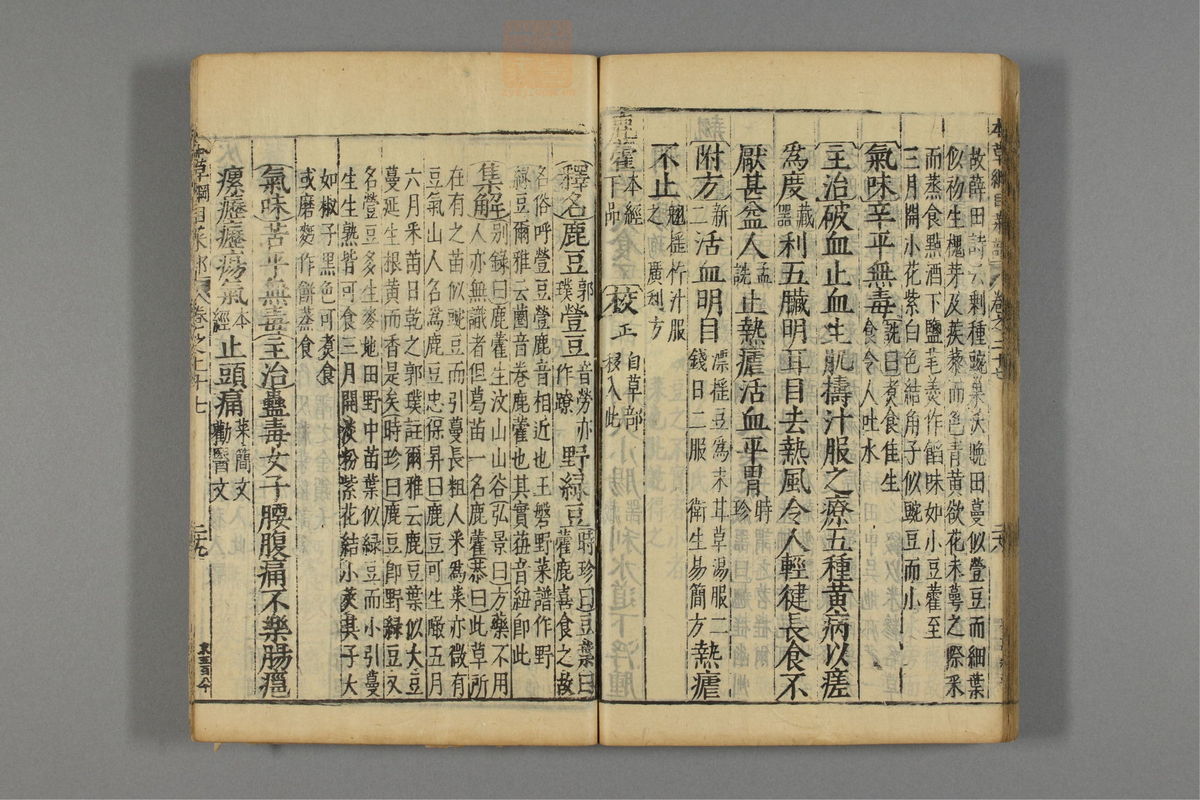 本草綱目菜部 卷之二十七
故薛田詩云剩種豌巢沃晚田蔓似䝁豆而細葉
似初生槐芽及蒺藜而色青黄欲花未萼之際采
而蒸食點酒下鹽芼羹作餡味如小豆藿至
三月開小花紫白色結角子似豌豆而小
氣味辛平無毒詵曰煮食佳生
食令人吐水
主治破血止血生肌擣汁服之療五種黄病以瘥
為度藏
器利五臟明耳目去熱風令人輕健長食不
厭甚益人孟
詵止熱瘧活血平胃時
珍
附方新
二活血明目漂摇豆為末甘草湯服二
錢日二服 衛生易簡方熱瘧
不止翹摇杵汁服
之 廣利方
鹿藿本經
下品 校正自草部
移入此
釋名鹿豆郭
璞䝁豆音勞亦
作蹽 野緑豆時珍曰豆葉曰
藿鹿喜食之故
名俗呼䝁豆䝁鹿音相近也王磐野菜譜作野
緑豆爾雅云蔨音卷鹿藿也其實莥音紐即此
集解别録曰鹿藿生汶山山谷弘景曰方藥不用
人亦無識者但葛苗一名鹿藿恭曰此草所
在有之苗似豌豆而引蔓長粗人采為菜亦微有
豆氣山人名為鹿豆也保昇曰鹿豆可生噉五月
六月采苗日乾之郭璞註爾雅云鹿豆葉似大豆
蔓延生根黄而香是矣時珍曰鹿豆即野緑豆又
名䝁豆多生麥地田野中苗葉似緑豆而小引蔓
生生熟皆可食三月開淡粉紫花結小莢其子大
如椒子黑色可煮食
或磨麪作餅蒸食
氣味苦平無毒主治蠱毒女子腰腹痛不樂腸癰
瘰癧瘍氣本
經止頭痛
本草綱目菜部 卷之二十七 二九